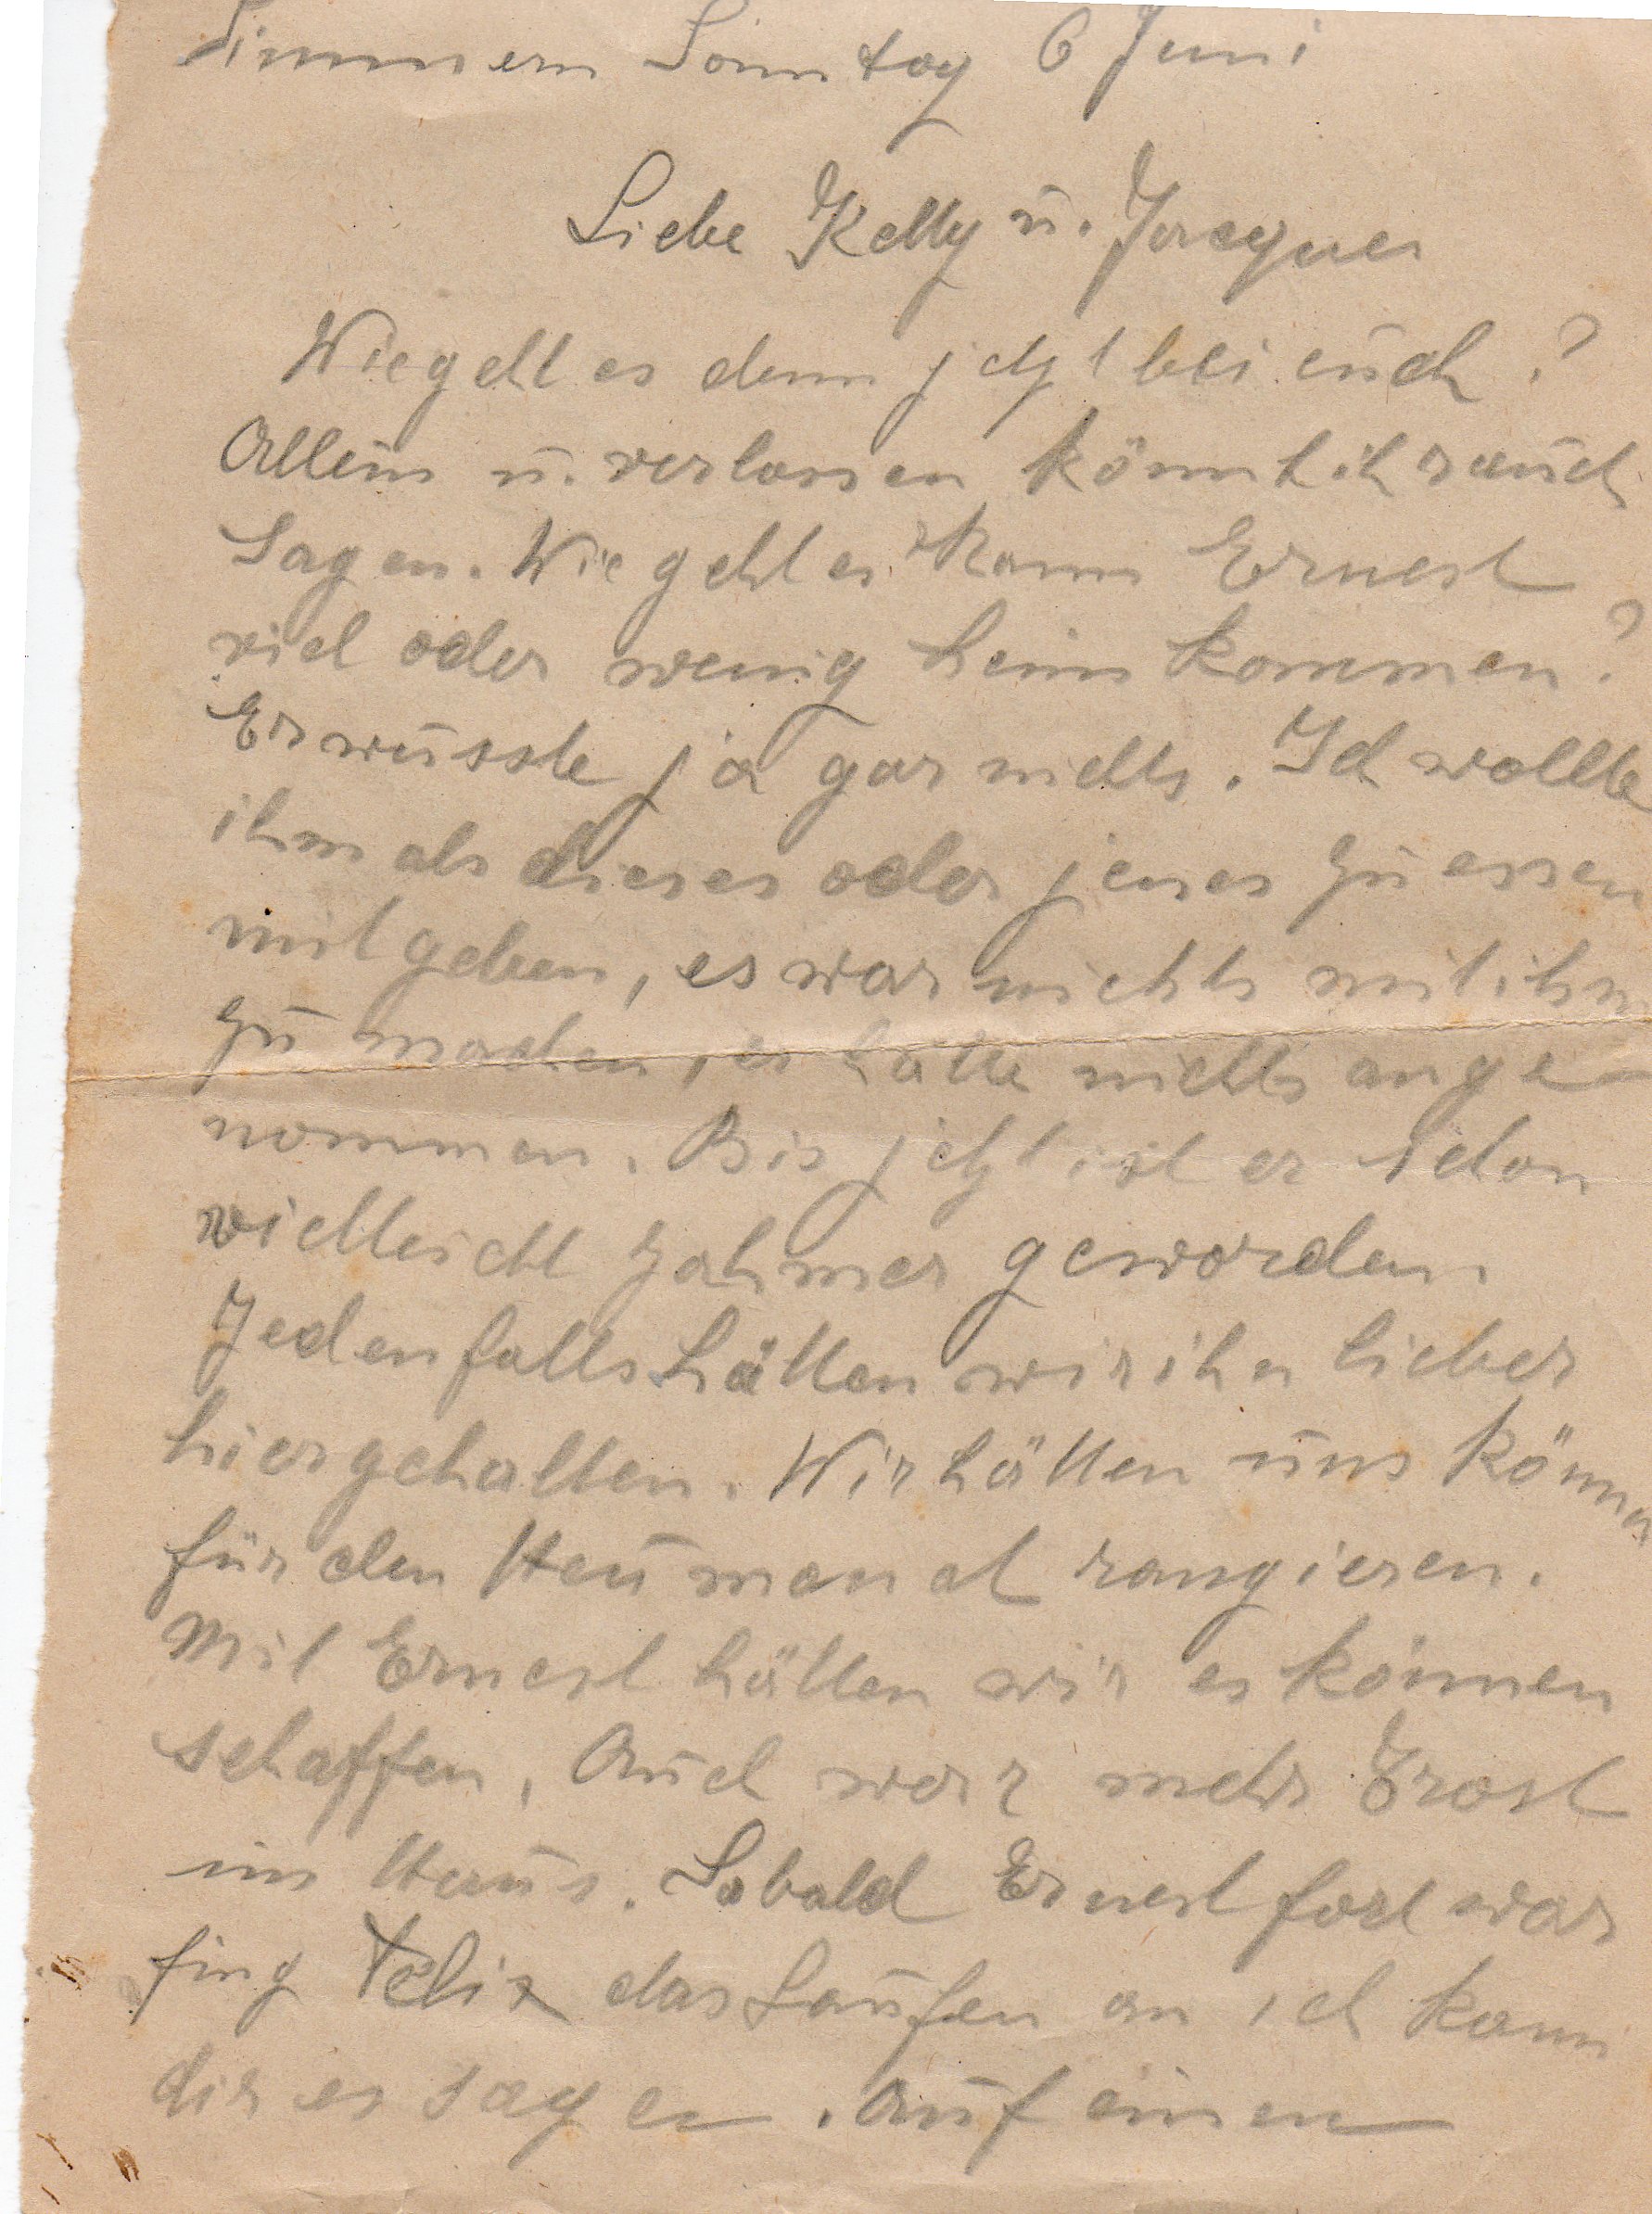 Simmern Sonntag 6 Juni
Liebe Kelly u. Jacques
Wie geht es denn jetzt bei euch?
Allein u. verlassen könnt ihr auch
sagen. Wie geht es? Kann Ernest
viel oder wenig heim kommen?
Er wusste ja gar nichts. Ich wollte
ihm als dieses oder jenes zu essen
mitgeben, es war nichts mit ihm
zu machen, er hätte nichts ange-
nommen. Bis jetzt ist er schon
vielleicht zahmer geworden.
Jedenfalls hätten wir ihn lieber
hiergehalten. Wir hätten uns können
für den Heumonat rangieren.
Mit Ernest hätten wir es können
schaffen. Auch war mehr Trost
im Haus. Sobald Ernest fort war
fing Felix das Laufen an ich kann
dir es sagen. Auf einen